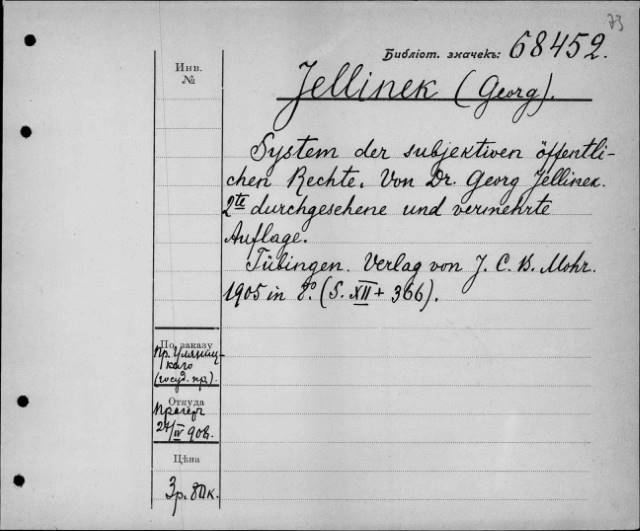 73
Библіот. значекъ: 68452.
Инв.
№
Jellinek (Georg).
System der subjektiven öffentli-
chen Rechte. Von Dr. Georg Jellinek.
2te durchgesehene und vermehrte
Auflage.
Tübingen. Verlag von J. C. B. Mohr.
1905 in 8º. (S. XII + 366).
По заказу
Пр. Уляниц-
каго
(госуд. пр.).
Откуда
Прагеръ
27/IV 908.
Цѣна
3 р. 80 к.